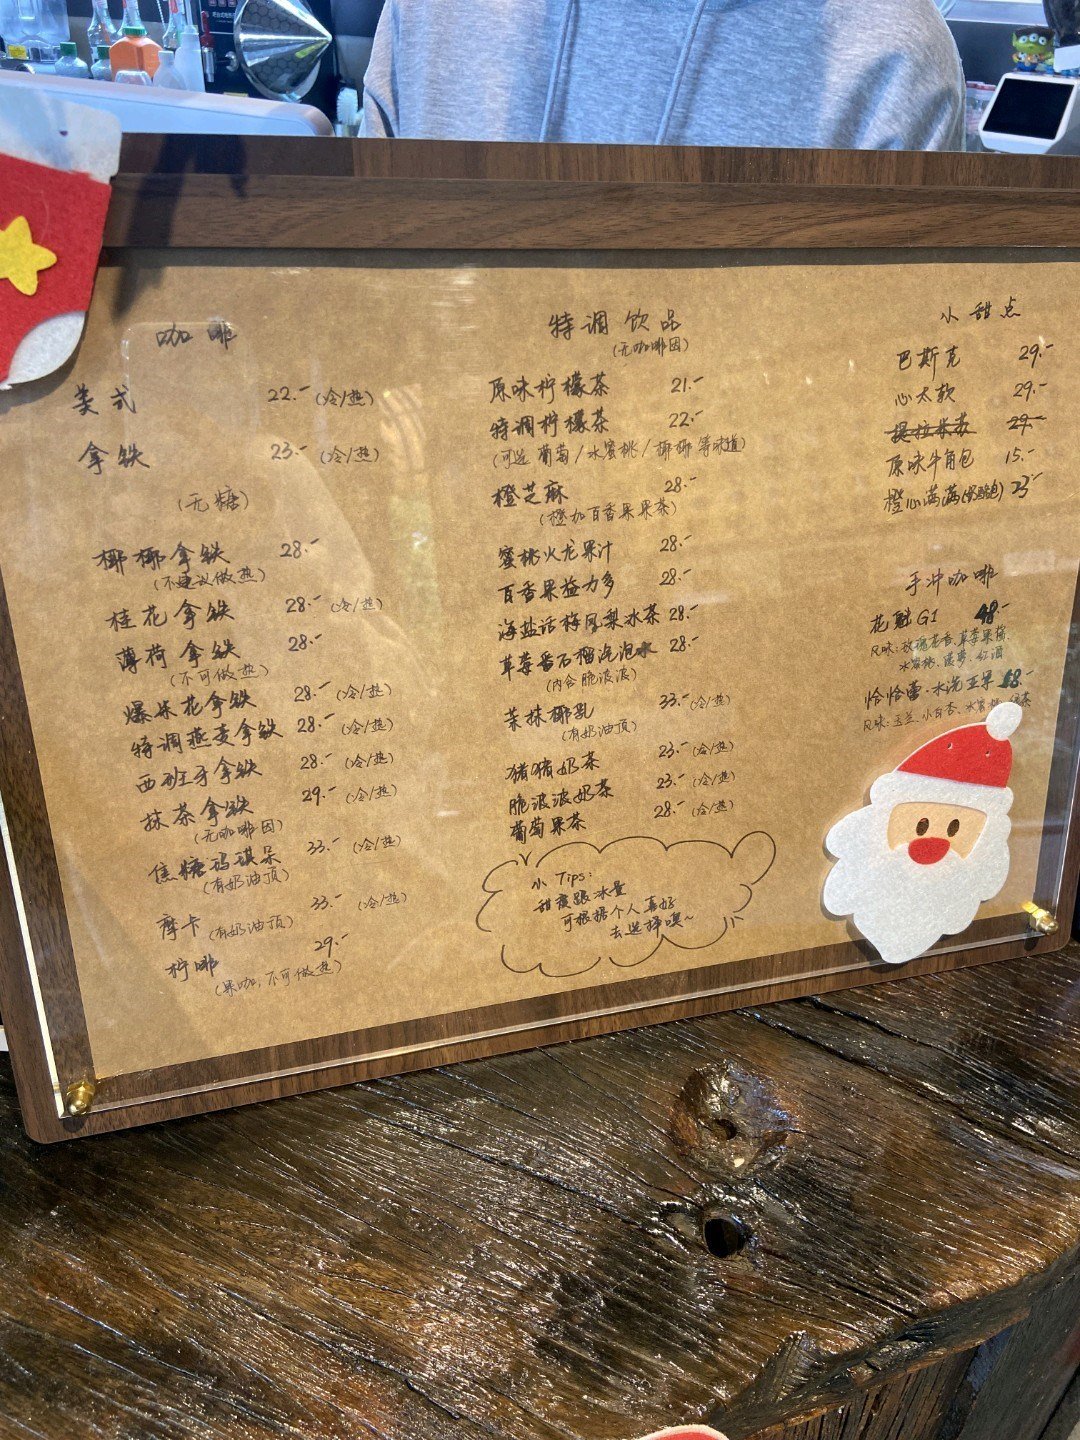 咖啡
美式 22.- (冷/热)
拿铁 23.- (冷/热)
(无糖)
椰椰拿铁 28.-
(不建议做热)
桂花拿铁 28.- (冷/热)
薄荷拿铁 28.-
(不可做热)
爆米花拿铁 28.- (冷/热)
特调燕麦拿铁 28.- (冷/热)
西班牙拿铁 28.- (冷/热)
抹茶拿铁 29.- (冷/热)
(无咖啡因)
焦糖玛琪朵 33.- (冷/热)
(有奶油顶)
摩卡 (有奶油顶) 33.- (冷/热)
柠啡 29.-
(果咖,不可做热)
特调饮品
(无咖啡因)
原味柠檬茶 21.-
特调柠檬茶 22.-
(可选葡萄/水蜜桃/椰椰等味道)
橙芝麻 28.-
(橙加百香果果茶)
蜜桃火龙果汁 28.-
百香果益力多 28.-
海盐话梅凤梨冰茶 28.-
草莓番石榴泡泡水 28.-
(内含脆波波)
茉抹椰乳 33.- (冷/热)
(有奶油顶)
猪猪奶茶 23.- (冷/热)
脆波波奶茶 23.- (冷/热)
葡萄果茶 28.- (冷/热)
小 Tips:
甜度跟冰量
可根据个人喜好
去选择噢~
小甜点
巴斯克 29.-
心太软 29.-
提拉米苏 29.-
原味牛角包 15.-
橙心满满 23.-
手冲咖啡
花魁G1 48.-
风味:玫瑰花香、草莓果酱、
水蜜桃、菠萝、红酒
恰恰蕾·水洗豆 58.-
风味:玉兰、小白杏、水蜜桃、绿茶